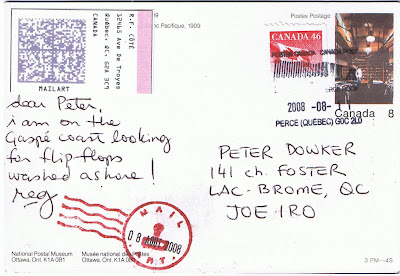 R.F. CÔTÉ
12465 Ave De Troyes
Québec, QC, G2A 3C9
CANADA
MAILART
dear Peter,
i am on the
Gaspé coast looking
for flip flops
washed ashore!
reg
MAIL
ART
08 AOUT 2008
National Postal Museum
Ottawa, Ont. K1A 0B1
Musée national des Postes
Ottawa, Ont. K1A 0B1
Pacifique, 1909
Postes Postage
CANADA 46
2008 -08-
PERCE (QUÉBEC) G0C 2L0
Canada 8
PETER DOWKER
141 ch. FOSTER
LAC-BROME, QC
JOE 1RO
3 PM-43